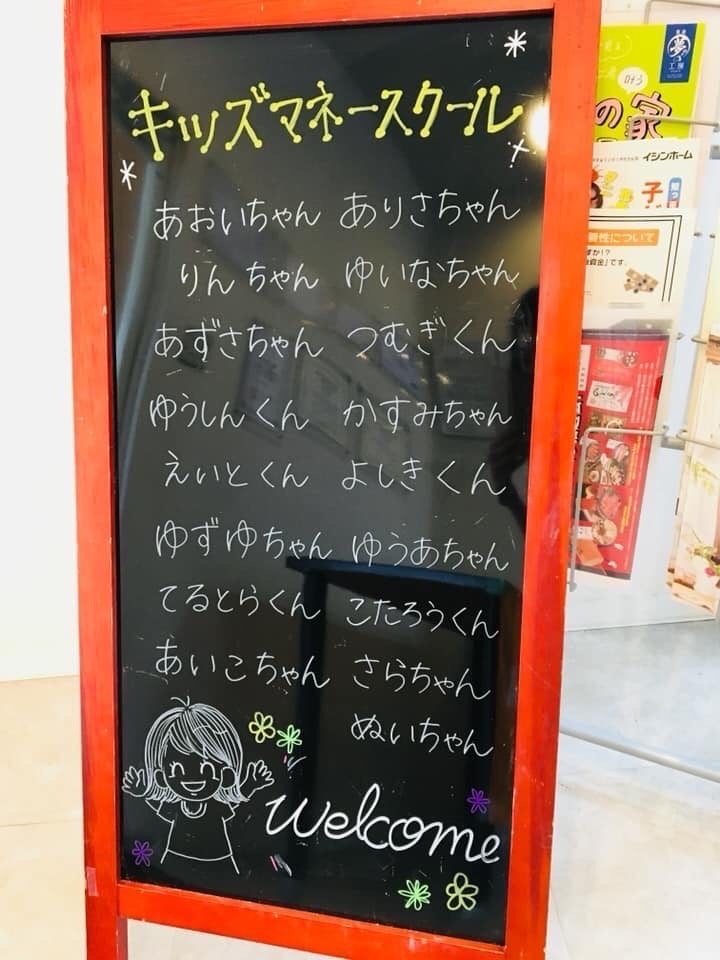 キッズマネースクール
あおいちゃん ありさちゃん
りんちゃん ゆいなちゃん
あずさちゃん つむぎくん
ゆうしんくん かすみちゃん
えいとくん よしきくん
ゆずゆちゃん ゆうあちゃん
てるとらくん こたろうくん
あいこちゃん さらちゃん
ぬいちゃん
welcome
夢
工房
叶う
の家
イシンホーム
子ど
性について
すか!?
資金」です。